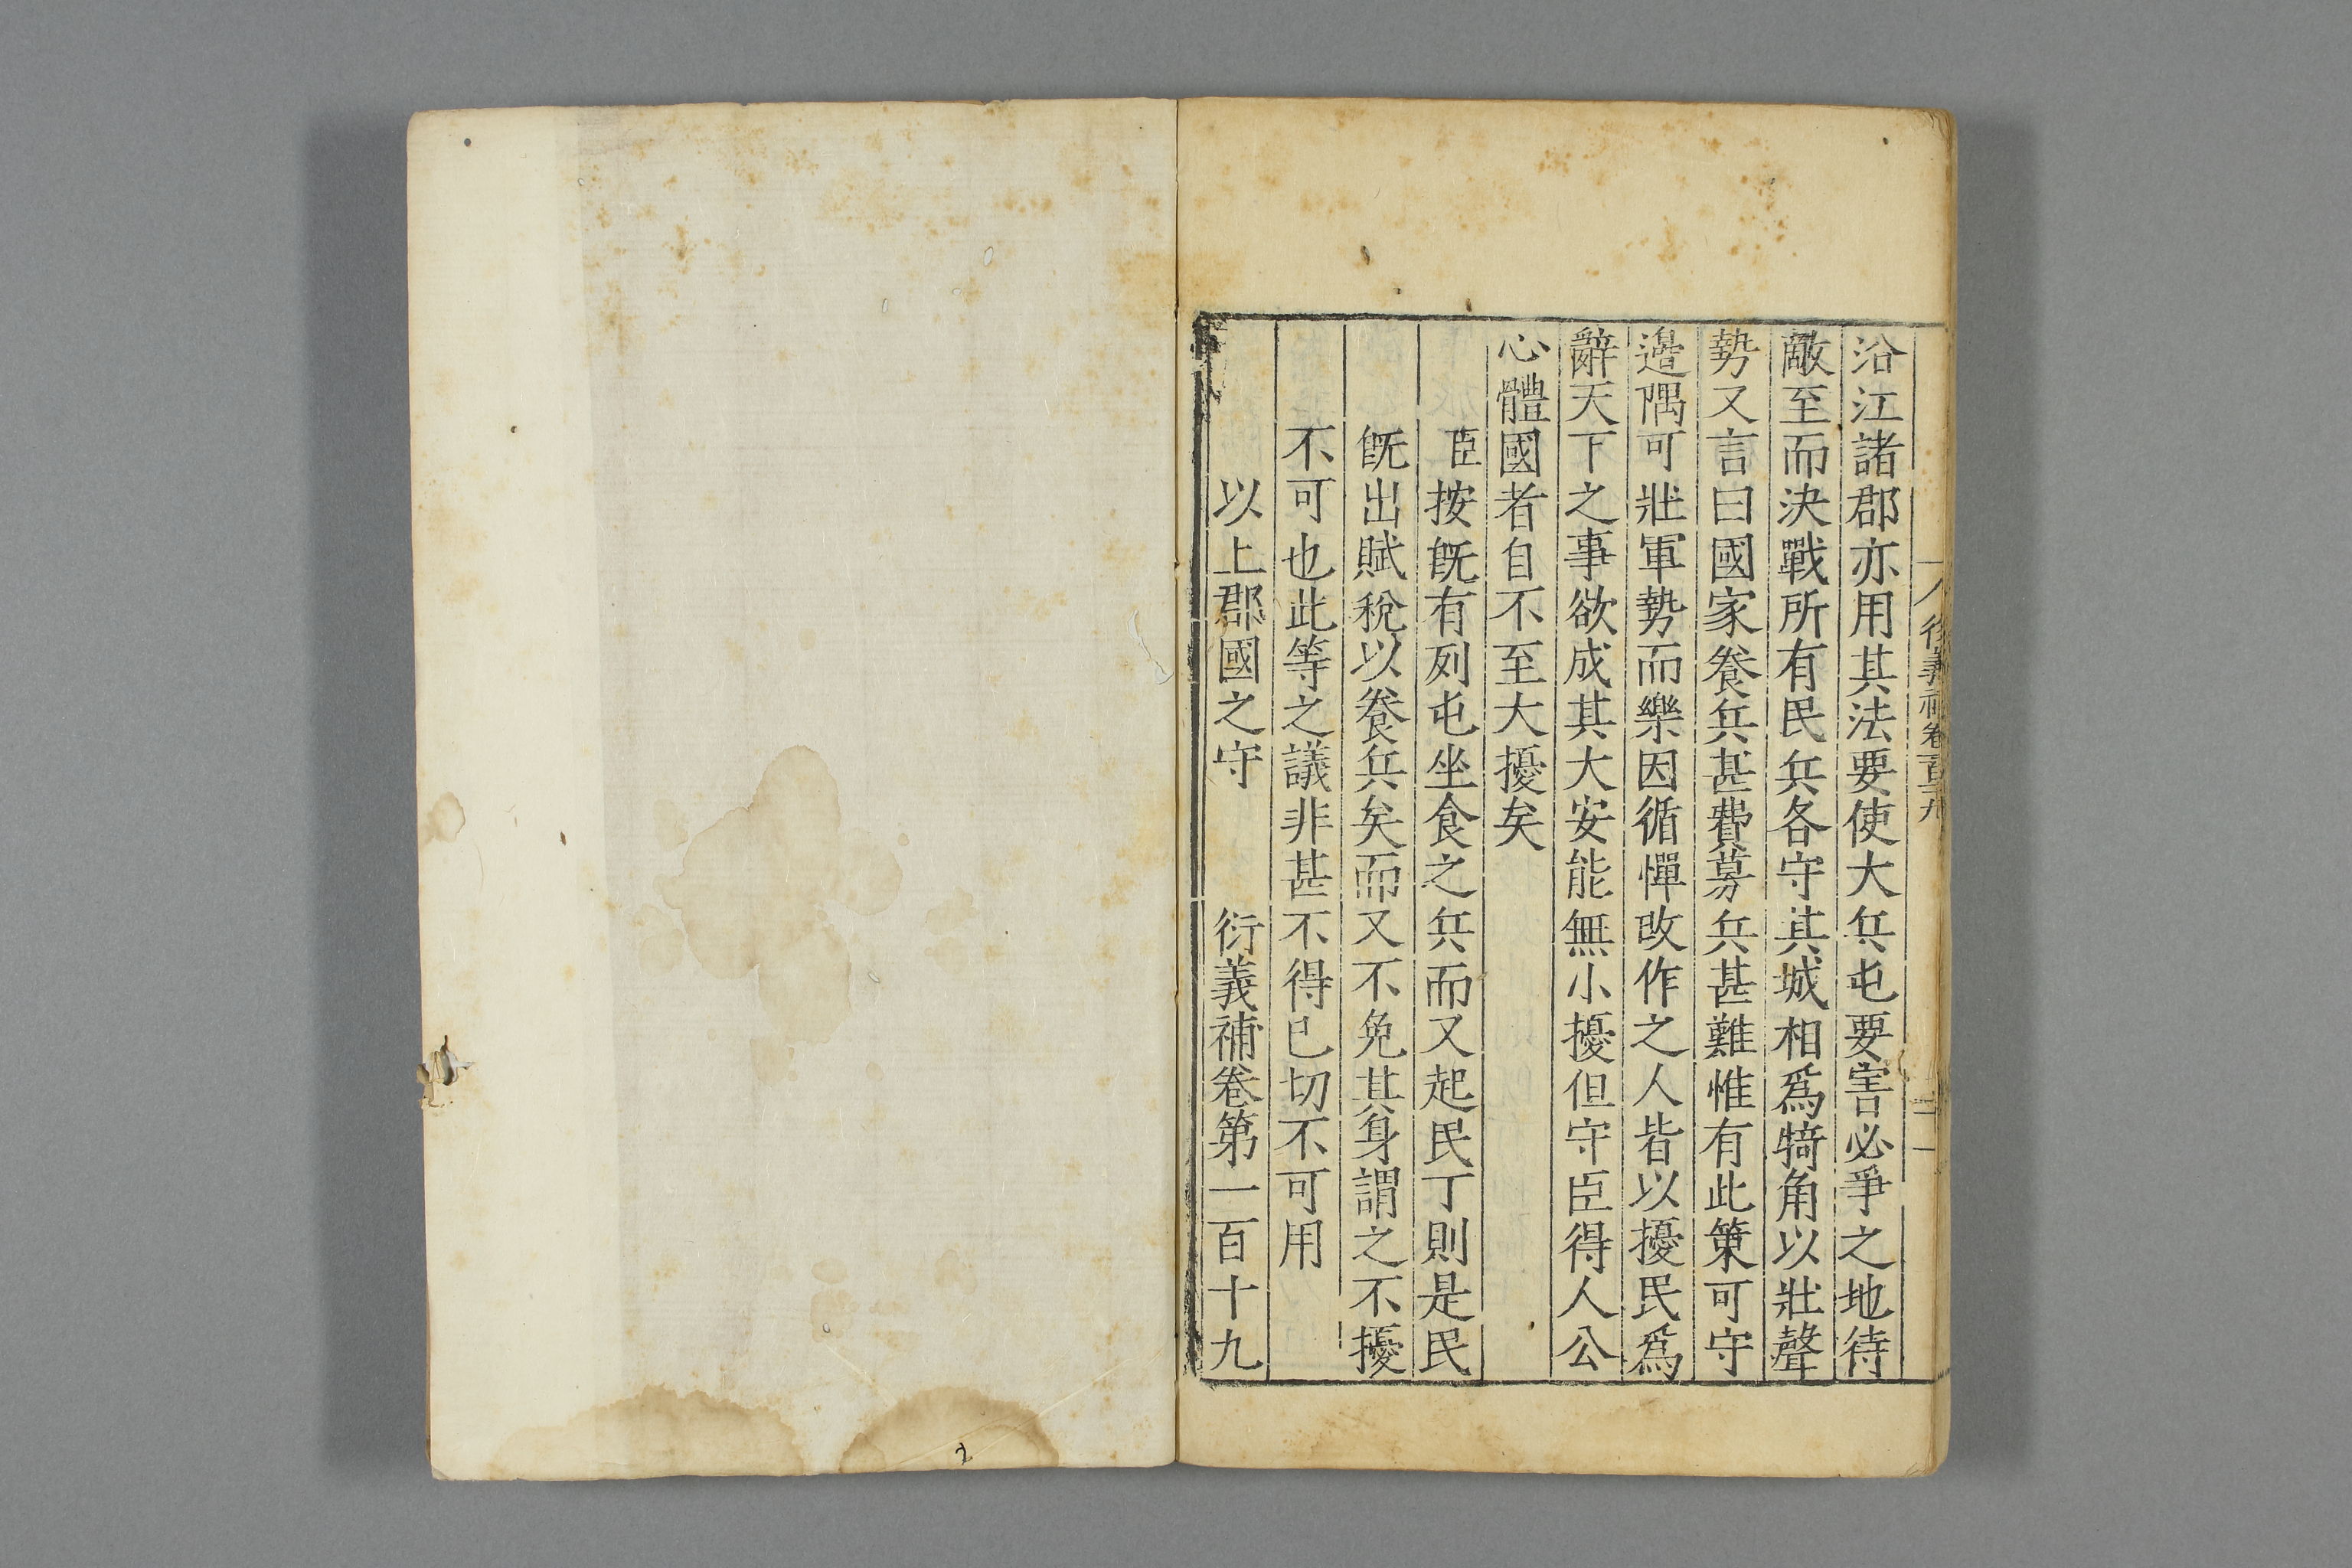 沿江諸郡亦用其法要使大兵屯要害必爭之地待
敵至而決戰所有民兵各守其城相爲犄角以壯聲
勢又言曰國家養兵甚費募兵甚難惟有此策可守
邊隅可壯軍勢而樂因循憚改作之人皆以擾民爲
辭天下之事欲成其大安能無小擾但守臣得人公
心體國者自不至大擾矣
臣按旣有列屯坐食之兵而又起民丁則是民
旣出賦稅以養兵矣而又不免其身謂之不擾
不可也此等之議非甚不得已切不可用
以上郡國之守
衍義補卷第一百十九
衍義補卷百十九